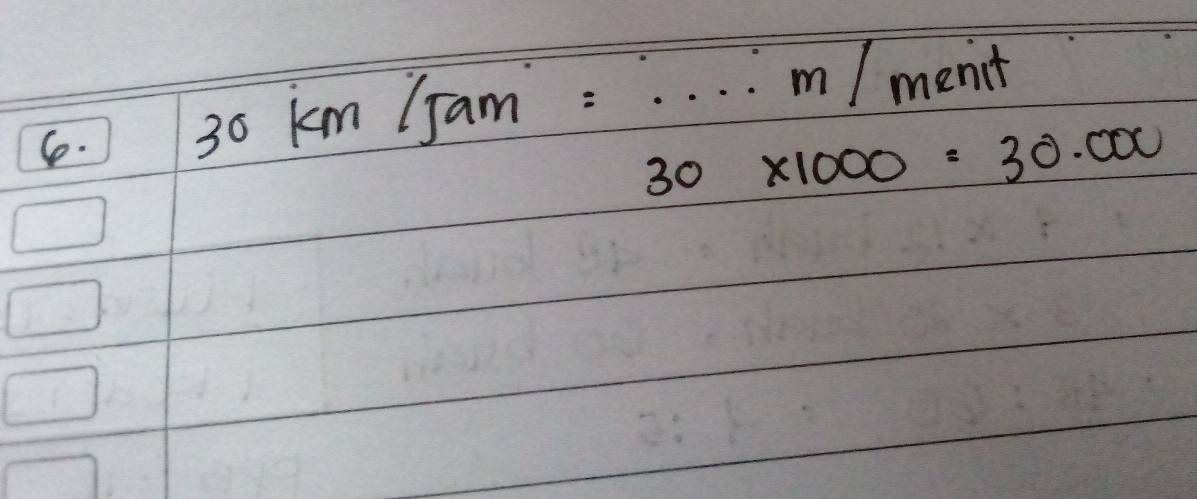 6. 30 km/Jam = .... m/menit
30 x1000 = 30.000